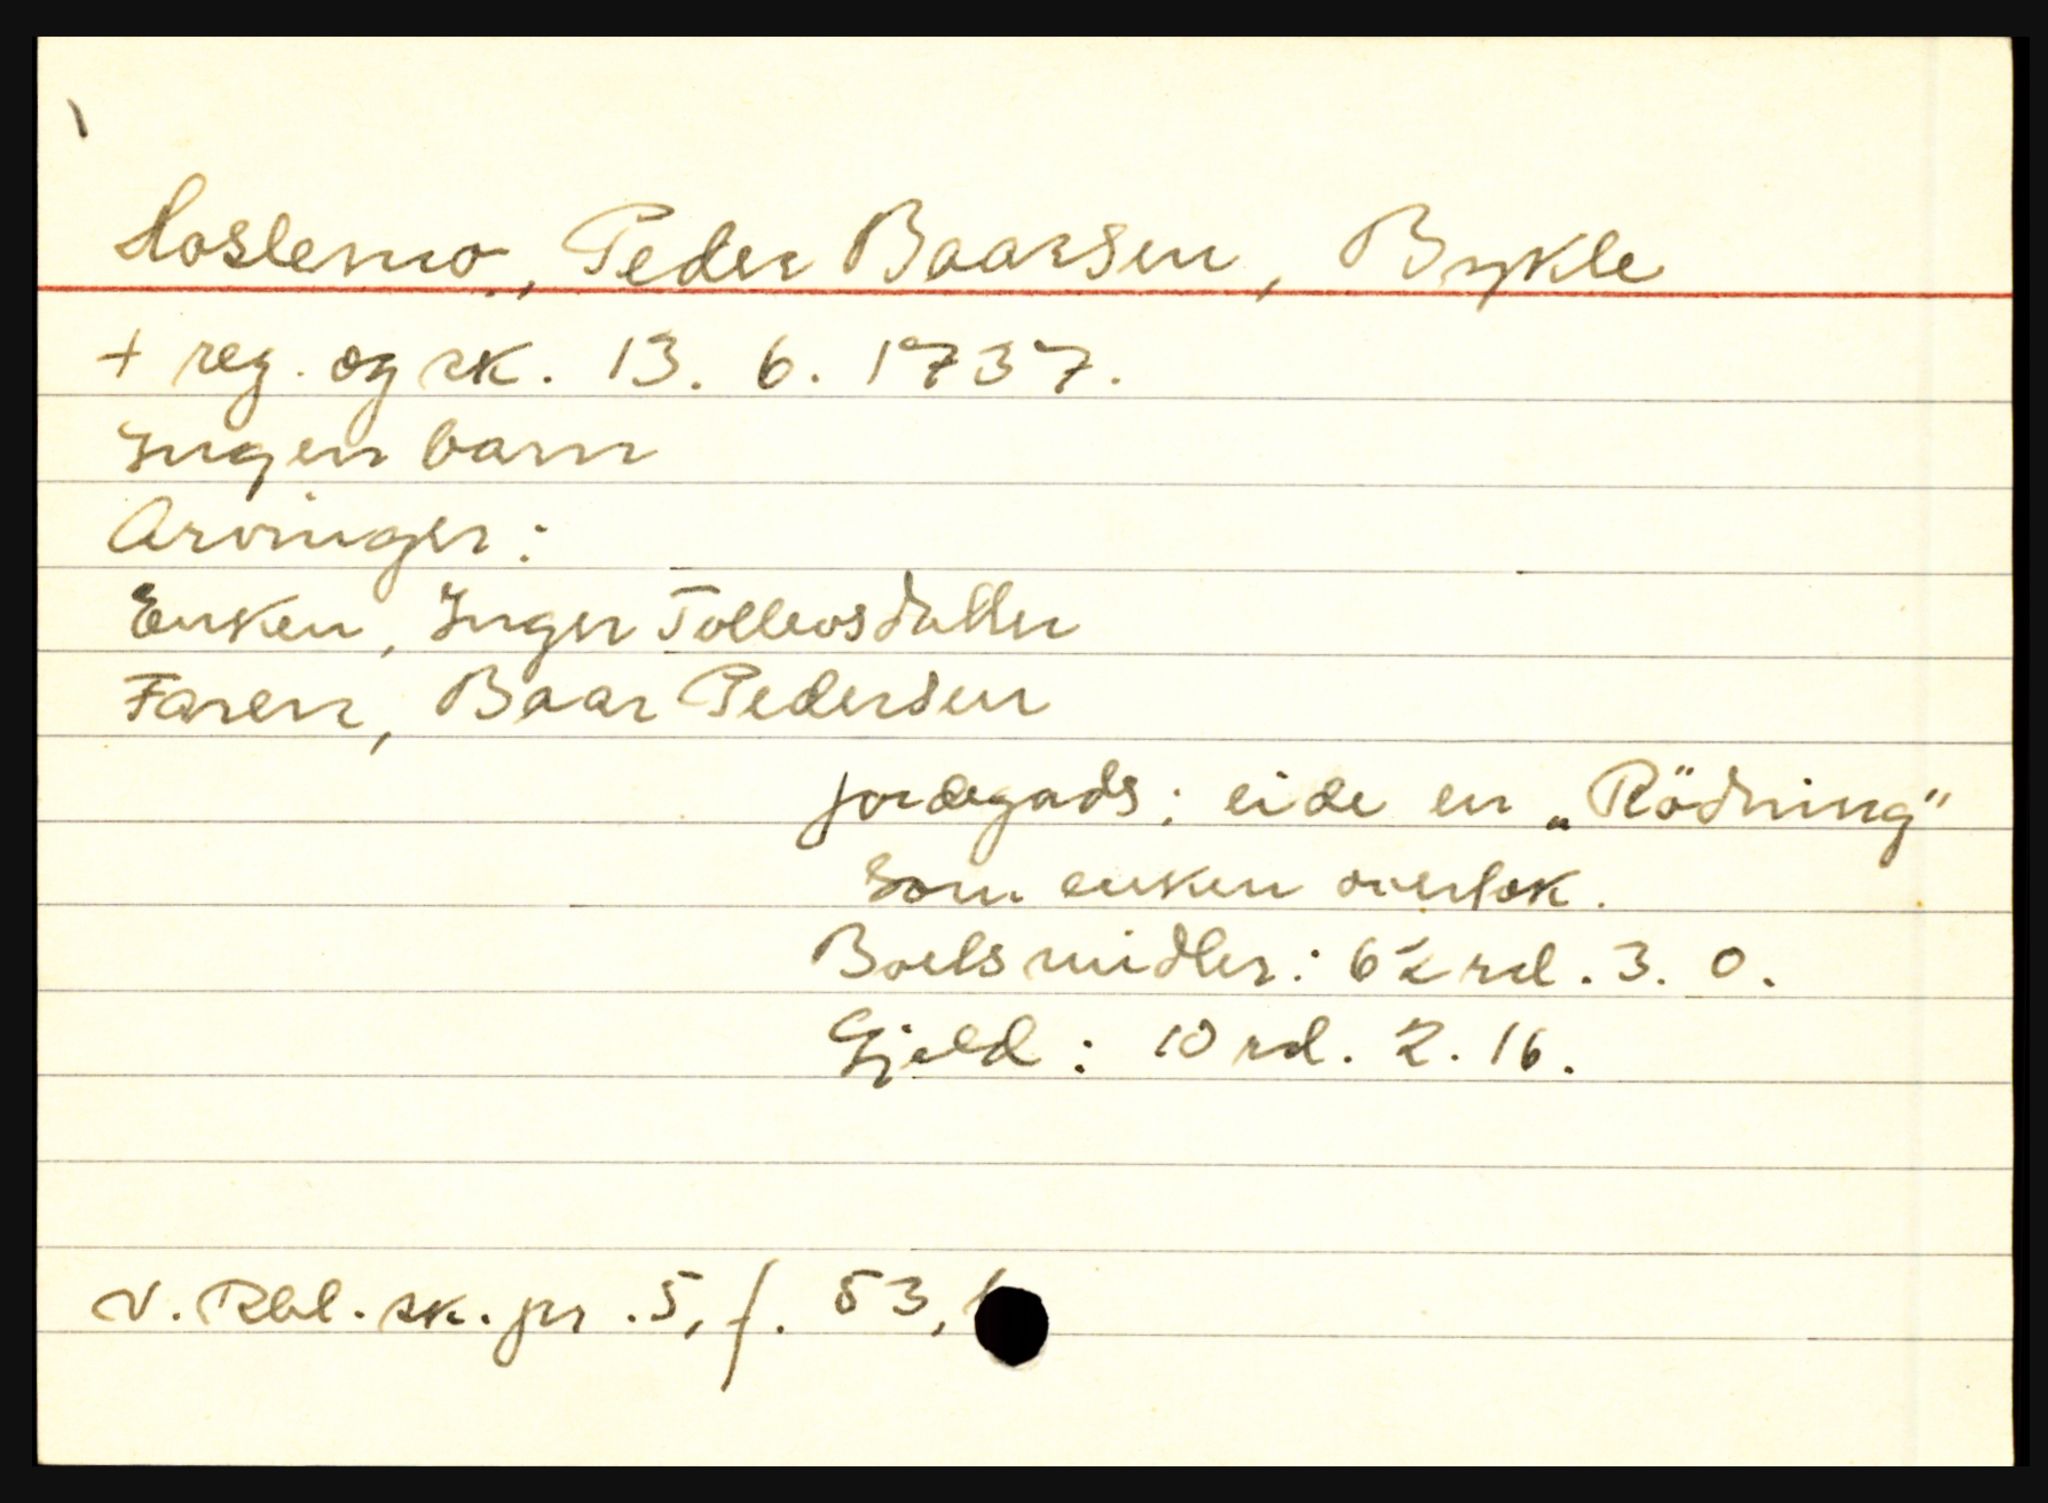 Hoslemo, Peder Baarsen, Bykle
+ reg. og sk. 13. 6. 1737.
Ingen barn
Arvinger:
Enken, Inger Tollevsdatter
Faren, Baar Pedersen
jordegods; eide en „Rödning"
som enken overtok.
Boets midler: 62 rd. 3. 0.
Gjeld: 10 rd. 2. 16.
v. Rbl. sk. pr. 5, f. 53,